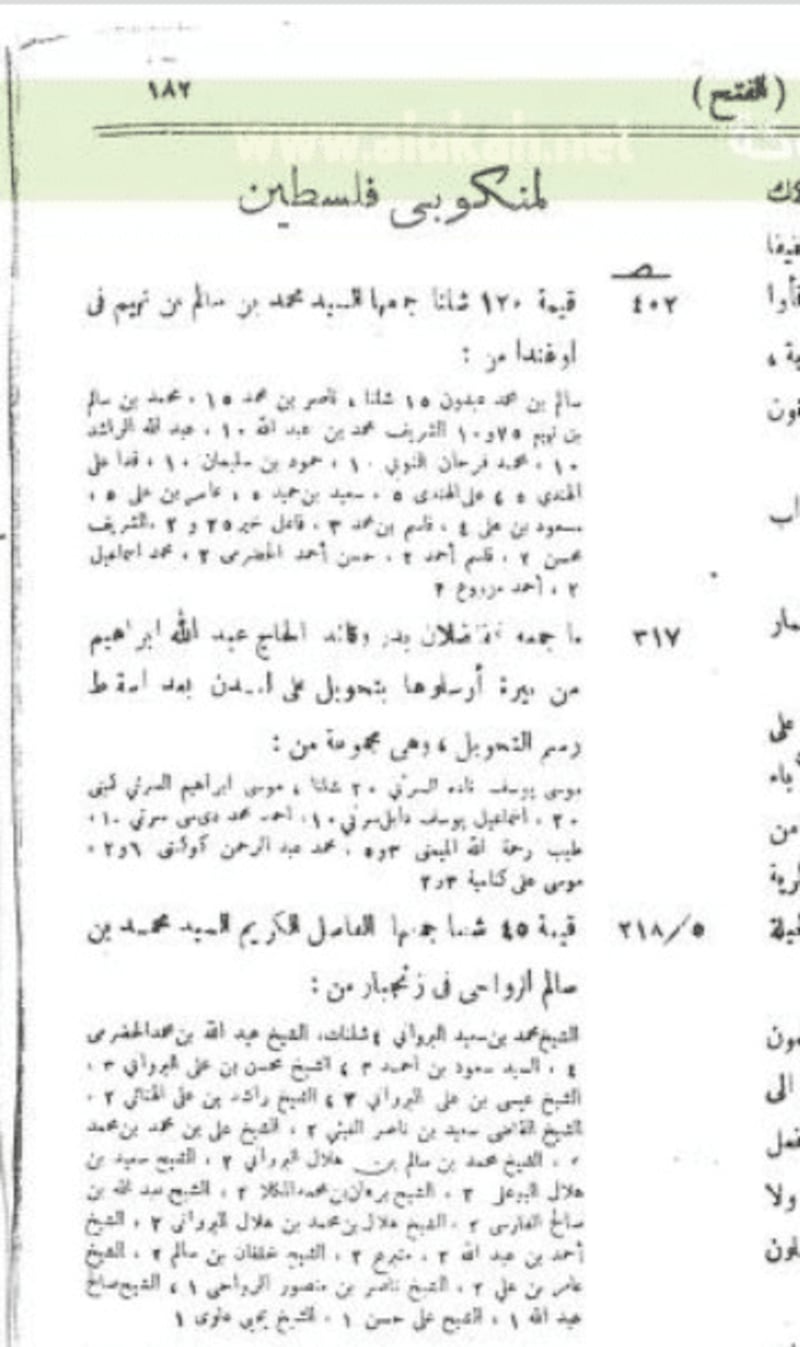 (الفتح)
١٨٢
www.alukah.net
لمنكوبي فلسطين
٤٠٢ قيمة ١٢٠ شلنا جمعها السيد محمد بن سالم بن نهيم فى
اوغندا من :
سالم بن محمد عبدون ١٥ شلنا ، ناصر بن محمد ١٥ ، محمد بن سالم
بن نهيم ٧٥و١٠ الشريف محمد بن عبد الله ١٠ ، عبد الله الراشد
١٠ ، محمد فرحان النوبي ١٠ ، حمود بن سليمان ١٠ ، فدا على
الهندى ٥ ، على الهندى ٥ ، سعيد بن حميد ٥ ، عامر بن على ٥ ،
مسعود بن على ٤ ، قاسم بن محمد ٣ ، فاعل خير ٢٥ و ٢ ، الشريف
محسن ٢ ، قاسم أحمد ٢ ، حسن أحمد الحضرمى ٢ ، محمد اسماعيل
٢ ، أحمد ٢
٣١٧ ما جمعه بدر وقائد الحاج عبد الله ابراهيم
من بيرة أرسلوها بتحويل على لندن بعد اسقاط
رسم التحويل ، وهى مجموعة من :
موسى يوسف السرتي ٢٠ شلنا ، موسى ابراهيم السرتي
٢٠ ، اسماعيل يوسف سرتي ١٠ ، احمد محمد سرتي ١٠ ،
طيب رحمة الله الميمنى ٣و٥ ، محمد عبد الرحمن ٦و٢ ،
موسى على ٣و٢
٢١٨/٥ قيمة ٤٥ شلنا جمعها الفاضل الكريم السيد محمد بن
سالم الرواحى فى زنجبار من :
الشيخ محمد بن سعيد البرواني ٤ شلنات، الشيخ عبد الله بن محمد الحضرمى
٤ ، السيد سعود بن أحمد ٣ ، الشيخ محسن بن على البرواني ٣ ،
الشيخ عيسى بن على البرواني ٣ ، الشيخ راشد بن على الهنائى ٢ ،
الشيخ القاضى سعيد بن ناصر الغيثي ٢ ، الشيخ على بن محمد بن محمد
٢ ، الشيخ محمد بن سالم بن هلال البرواني ٢ ، الشيخ سعيد بن
هلال ٢ ، الشيخ برهان بن محمد ٢ ، الشيخ عبد الله بن
صالح الفارسى ٢ ، الشيخ هلال بن محمد بن هلال البروانى ٢ ، الشيخ
أحمد بن عبد الله ٢ ، متبرع ٢ ، الشيخ خلفان بن سالم ٢ ، الشيخ
عامر بن على ٢ ، الشيخ ناصر بن منصور الرواحى ١ ، الشيخ صالح
عبد الله ١ ، الشيخ على حسن ١ ، الشيخ يحيى علوى ١